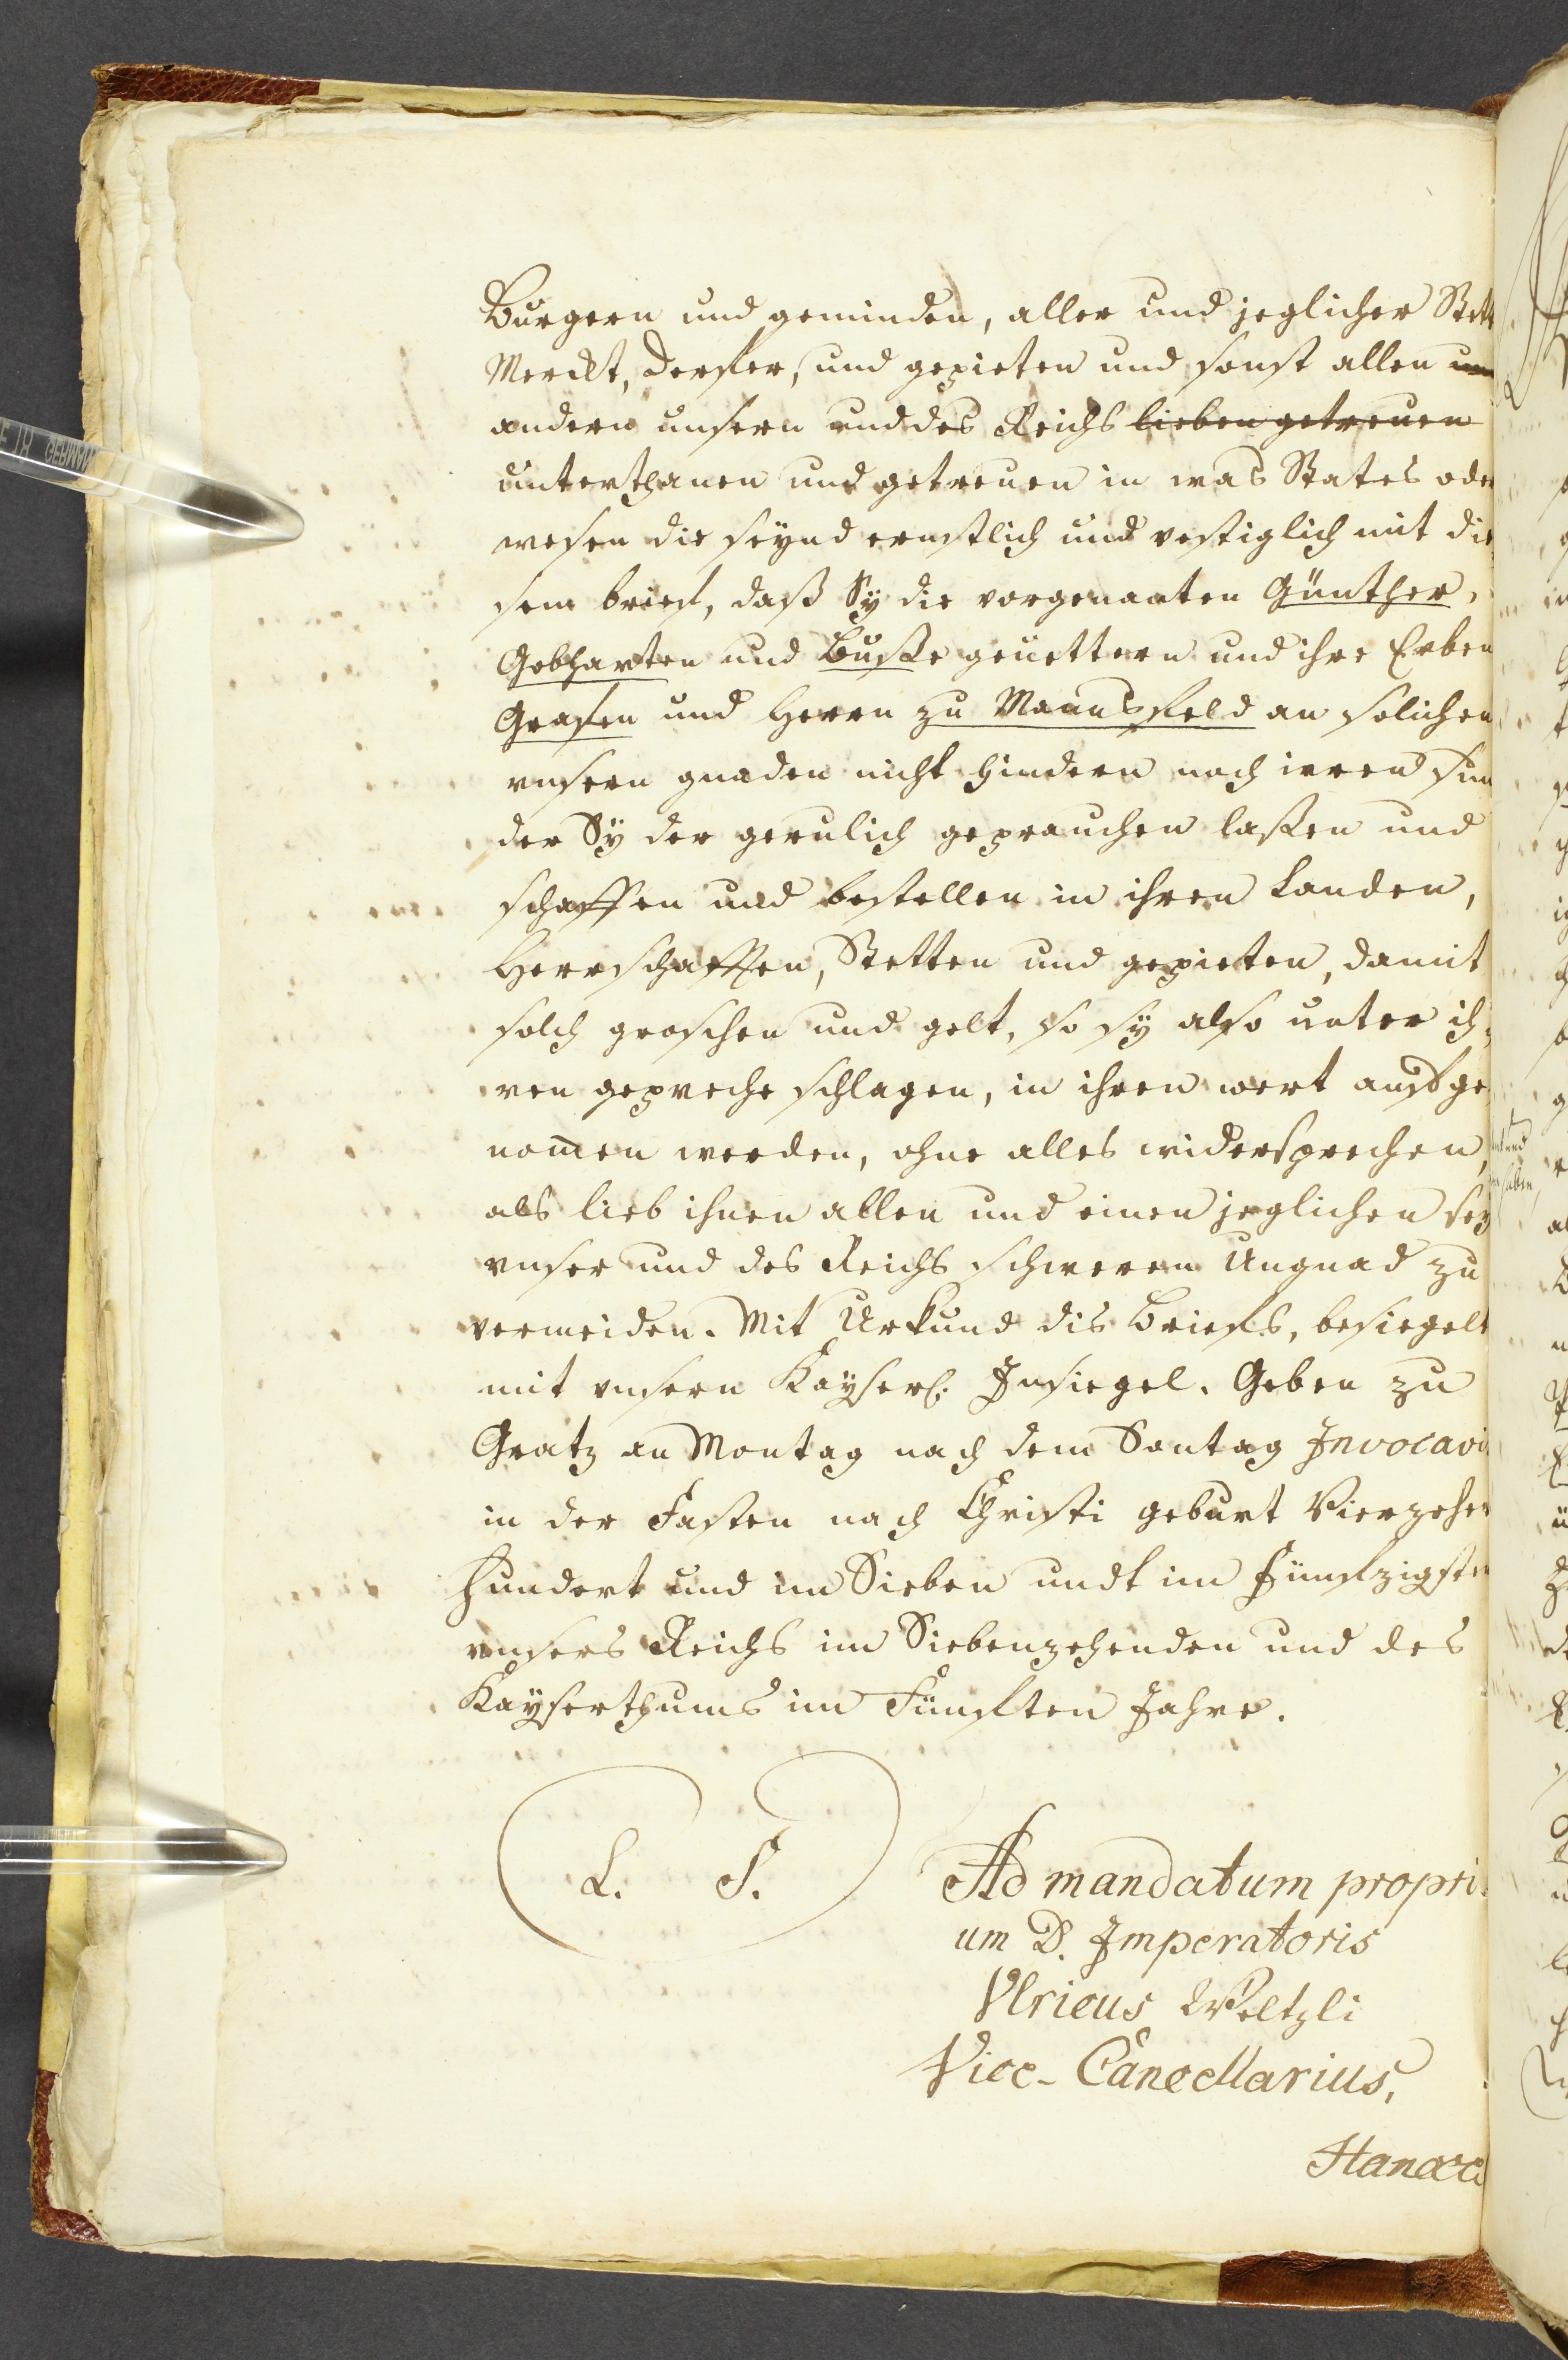 Burgern und geminden, aller und jeglicher Stett
Merckt, Derfer, und gepieten und sonst allen
andern unsern und des Reichs lieben getreuen
unterthanen und getreuen in was States oder
wesen die seynd ernstlich und vestiglich mit die
sem brief, daß Sÿ die vorgenanten Günther,
Gebharten und Busße geuettern und ihre Erben
Grafen und Herrn zu Mannsfeld an solichen
unsern gnaden nicht hindern noch irren sun
der Sÿ der gerulich geprauchen laßen und
schaffen und bestellen in ihren Landen,
Herrschafften, Stetten und gepieten, damit
solch groschen und gelt, so sÿ also unter ih
ren gepreche schlagen, in ihren wert aufge
nom̄en werden, ohne alles widersprechen,
als lieb ihnen allen und einen jeglichen sey
unser und des Reichs schweren Ungnad zu
vermeiden. Mit Urkund dis Briefs, besiegelt
mit unsern Kayserl. Insiegel. Geben zu
Gratz an Montag nach dem Sontag Invocavi
in der Fasten nach Christi geburt Vierzehen
hundert und im Sieben undt im Fünfzigsten
unsers Reichs im Siebenzehenden und des
Kayserthums im Fünften Jahre.
L. S.
Ad mandatum propri
um D. Imperatoris
Ulricus Weltzli
Vice-Cancellarius,